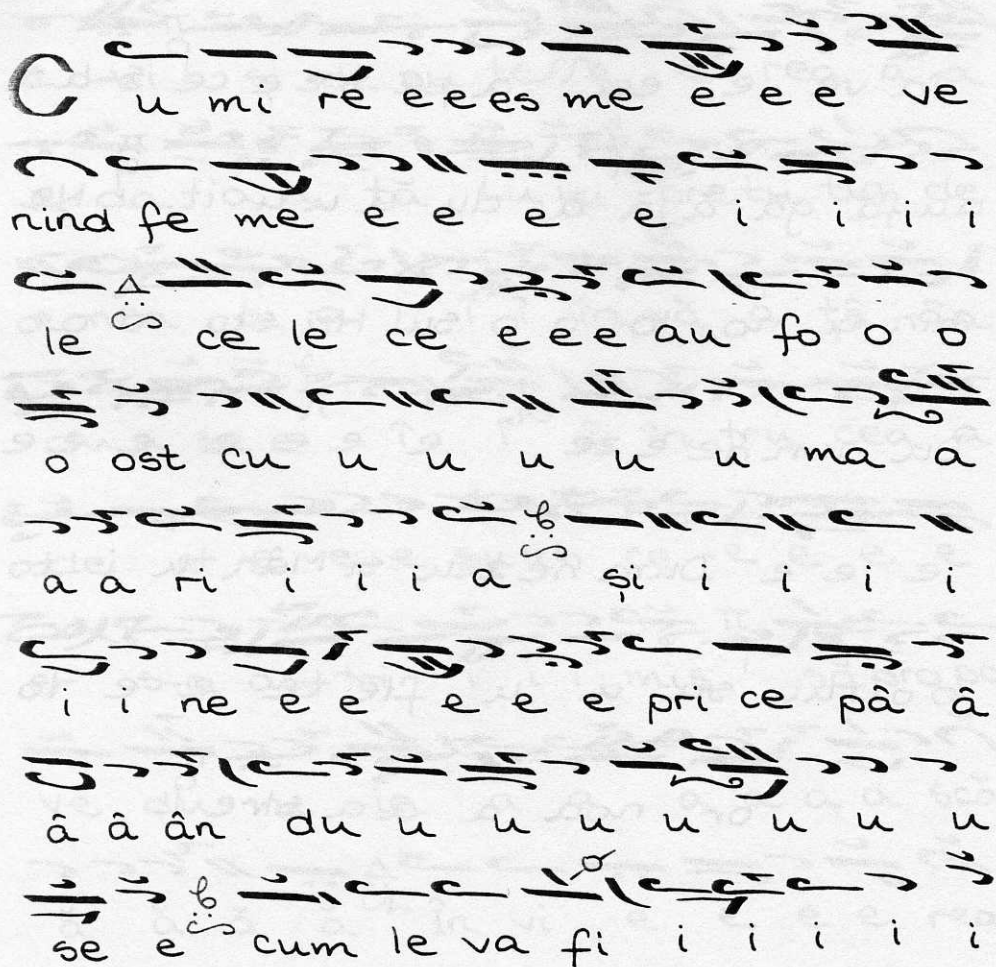 C u mi re e e es me e e e ve
nind fe me e e e e i i i i
le ce le ce e e e au fo o o
o ost cu u u u u u ma a
a a ri i i i a și i i i i
i i ne e e e e e pri ce pâ â
â â ân du u u u u u u u
se e cum le va fi i i i i i